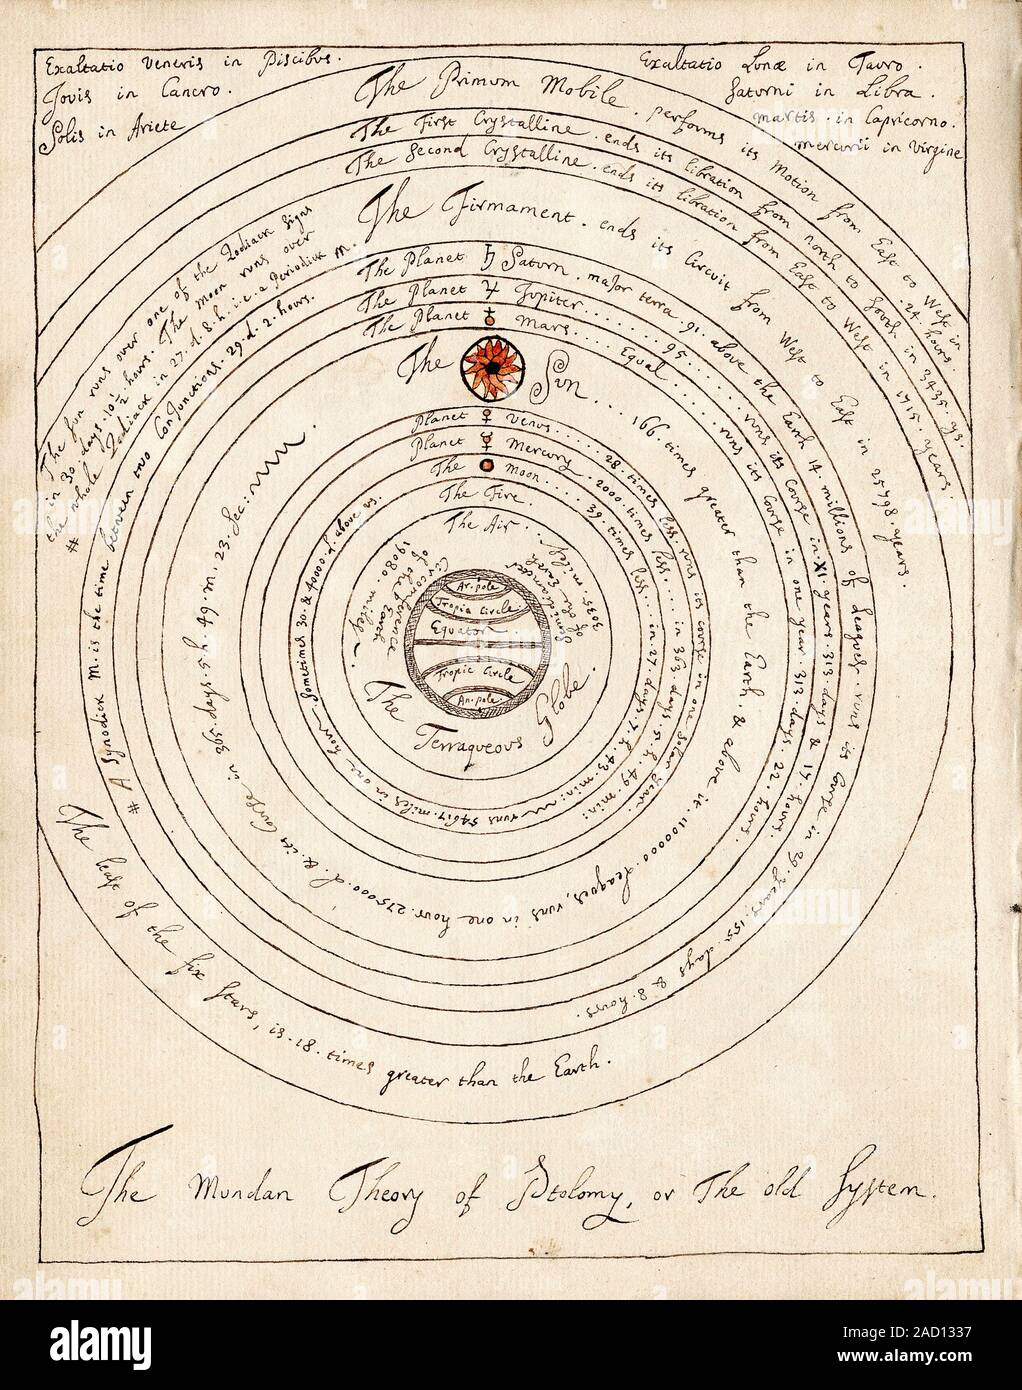 Exaltatio Veneris in Piscibus.
Jovis in Cancro.
Solis in Ariete
Exaltatio Lunæ in Tauro.
Saturni in Libra.
Martis. in Capricorno.
Mercurii in Virgine
The Primum Mobile. performs its Motion from East to West in 24. hours.
The First Crystalline. ends its libration from North to South in 3435. ys.
The Second Crystalline. ends its libration from East to West in 1715. years.
The Firmament. ends its Circuit from West to East in 25798. years.
The Planet ♄ Saturn. major terra. 91. above the Earth 14. millions of Leagues. runs its Course in 29. years. 155. days & 8. hours.
The Planet ♃ Jupiter...... 95....... runs its Course in XI. years. 313. days & 17. hours.
The Planet Mars.... Equal........ runs its Course in one year. 313. days. 22. hours.
The Sun.... 166. times greater than the Earth. & above it 1100000. Leagues, runs in one hour. 275000. L. & its Course in 365. days. 5. h. 49. m. 23. Sec:
Planet ♀ Venus..... 28. times less. runs its course in one Solar Year.
Planet ☿ Mercury. 2000. times less..... in 363. days. 5. h. 49. min:
The Moon.... 39. times less.... in. 27. days. 7. h. 43. min: runs 54617. miles in one hour
Sometimes 30. & 40000. L. above us.
The Fire.
The Air.
Circonference of the Earth 19080. miles.
Semidiameter of the Earth 3035. miles.
Ar. pole
Tropic Circle
Equator
Tropic Circle
An. pole
The Terraqueous Globe.
The sun runs over one of the Zodiack Signs
in 30. days. 10 1/2 hours. The Moon runs over
the whole Zodiack in 27. d. 8. h. i. e. a Periodick M.
# # A Synodick M. is the time between two Conjunctions. 29. d. 2. hours.
The least of the fix Stars, is. 18. times greater than the Earth.
The Mundan Theory of Ptolomy, or The old System.
alamy
Image ID: 2AD1337
www.alamy.com